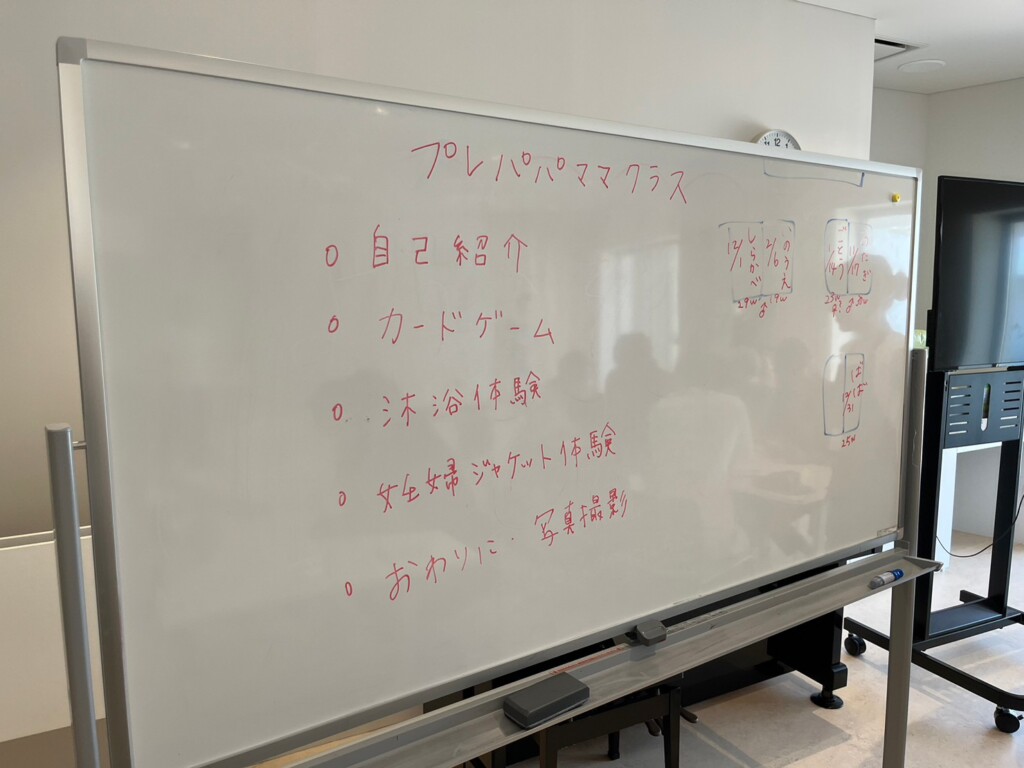 プレパパママクラス
o 自己紹介
o カードゲーム
o 沐浴体験
o 妊婦ジャケット体験
o おわりに・写真撮影
12/1 しらかべ
2/6 のうえ
29w
19w
12/31
25w